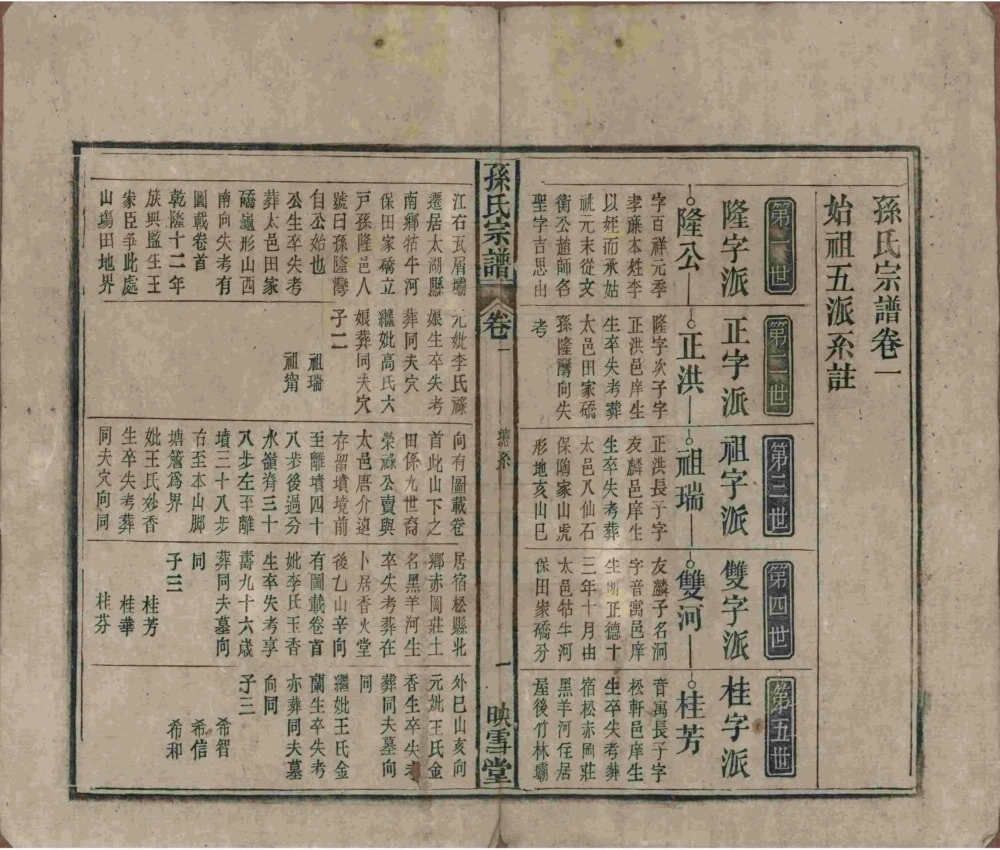 孫氏宗譜卷一
始祖五派系註
第一世
隆字派
隆公
字百祥元季
孝廉本姓李
以姪而承姑
祧元末從文
衡公趙師各
聖字吉思由
第二世
正字派
正洪
隆字次子字
正洪邑庠生
生卒失考葬
太邑田家礄
孫隆灣向失
考
第三世
祖字派
祖瑞
正洪長子字
友麟邑庠生
生卒失考葬
太邑八仙石
保隝家山虎
形地亥山巳
第四世
雙字派
雙河
友麟子名泂
字音寓邑庠
生明正德十
三年十月由
太邑牯牛河
保田家礄分
第五世
桂字派
桂芳
音寓長子字
松軒邑庠生
生卒失考葬
宿松赤岡莊
黑羊河侄居
屋後竹林壩
孫氏宗譜
卷一
總系
一
映雪堂
江右瓦屑壩
遷居太湖縣
南鄉牯牛河
保田家礄立
戶孫隆邑人
號曰孫隆灣
自公始也
公生卒失考
葬太邑田家
礄龜形山西
南向失考有
圖載卷首
乾隆十二年
族興監生王
家臣爭此處
山塲田地界
元妣李氏孺
娘生卒失考
葬同夫穴
繼妣高氏大
娘葬同夫穴
子二
祖瑞
祖甯
向有圖載卷
首此山下之
田係九世裔
榮祿公賣與
太邑唐介遠
存留墳境前
至離墳四十
八步後過分
水嶺濟三十
八步左至離
墳三十八步
右至本山脚
塘簷爲界
妣王氏妙香
生卒失考葬
同夫穴向同
居宿松縣北
鄉赤岡莊土
名黑羊河生
卒失考葬在
卜居香火堂
後乙山辛向
有圖載卷首
妣李氏玉香
生卒失考享
壽九十六歲
葬同夫墓向
同
子三
桂芳
桂華
桂芬
外巳山亥向
元妣王氏金
香生卒失考
葬同夫墓向
同
繼妣王氏金
蘭生卒失考
亦葬同夫墓
向同
子三
希智
希信
希和